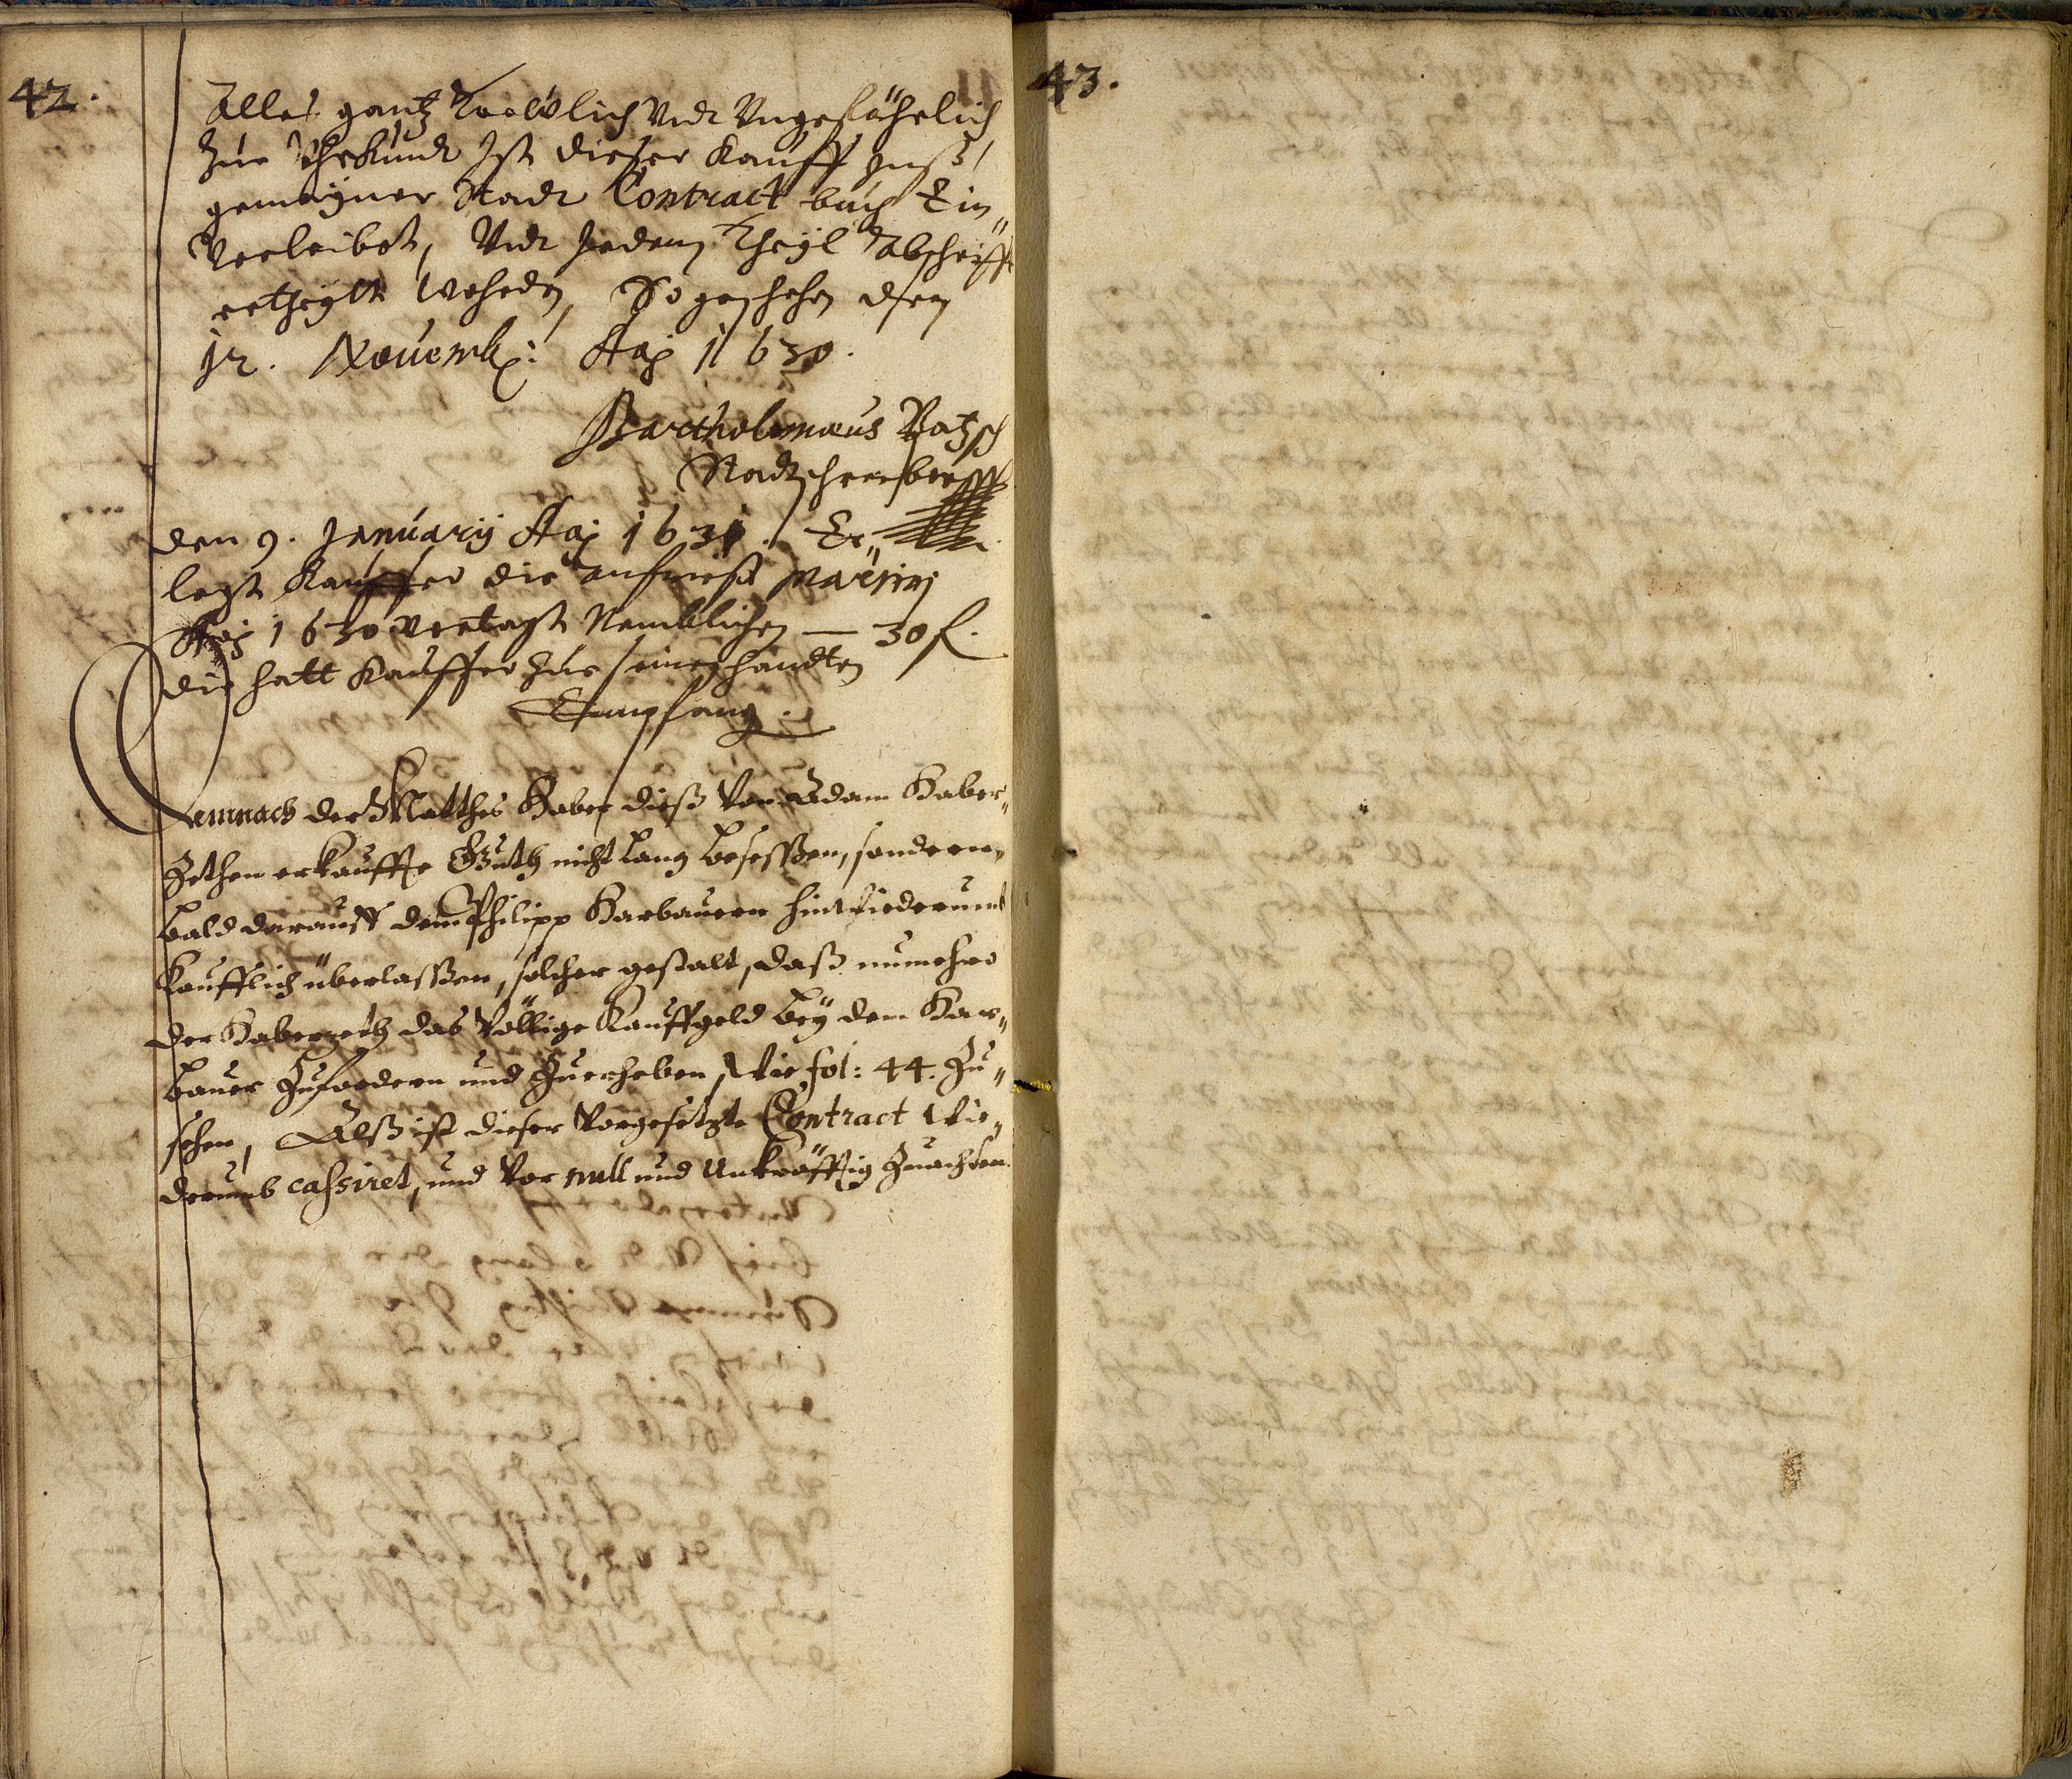 42.
Alles gantz Treẅlich Vnd Vngefährlich
Zue Vhrkundt Ist dieser Kauff Inß
gemeyner Stadt Contract buch Ein„
Verleibet, Vnd Jedem Theyl Abschrifft
ertheylt Wohrden, So geschehen den
12. Nouembr: Ao 1630.
Bartholomæus Patzsch
Stadtschreiber
den 9. Januarij Ao 1631. Er„
legt Kauffer die Martini
Ao 1630 vertagte Nemblichen — 30 f.
die hatt Kauffer Zue seinen handten
Empfang.
Demnach der Matthes Haber dieß Von Adam Haber„
Zethen erkauffte Guth nicht lang besessen, sondern
bald darauff dem Philipp Karbauern hinwiederumb
Kaufflich überlassen, solcher gestalt, daß numehro
der Haberzeth das Völlige Kauffgeld bey dem Kar„
bauer Zufordern und Zuerheben, Wie fol: 44. Zu„
sehen, Alß ist dieser Vorgesetzte Contract Wie„
derumb cassiret, und Vor null und Unkräfftig Zuachten.
43.